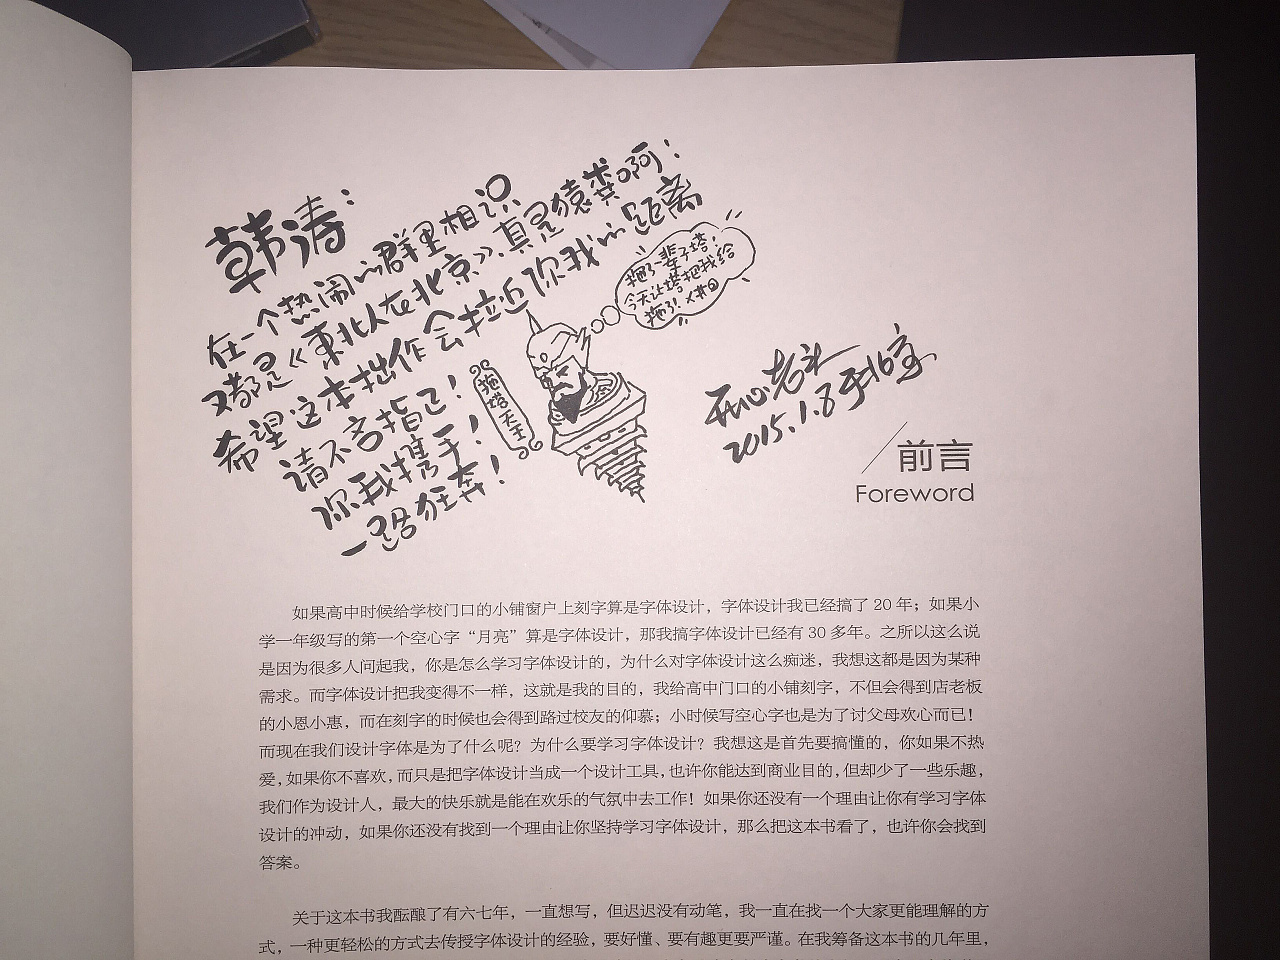 韩涛：
在一个热闹的群里相识
又都是《东北人在北京》，真是猿粪啊！
希望这本拙作会拉近你我的距离
请不吝指正！
你我携手！
一路狂奔！
托塔天王
拖了一辈子塔！
今天让塔把我给
拖了！×#@
开心老头
2015.1.8于北京
前言
Foreword
如果高中时候给学校门口的小铺窗户上刻字算是字体设计，字体设计我已经搞了 20 年；如果小
学一年级写的第一个空心字“月亮”算是字体设计，那我搞字体设计已经有 30 多年。之所以这么说
是因为很多人问起我，你是怎么学习字体设计的，为什么对字体设计这么痴迷，我想这都是因为某种
需求。而字体设计把我变得不一样，这就是我的目的，我给高中门口的小铺刻字，不但会得到店老板
的小恩小惠，而在刻字的时候也会得到路过校友的仰慕；小时候写空心字也是为了讨父母欢心而已！
而现在我们设计字体是为了什么呢？为什么要学习字体设计？我想这是首先要搞懂的，你如果不热
爱，如果你不喜欢，而只是把字体设计当成一个设计工具，也许你能达到商业目的，但却少了一些乐趣，
我们作为设计人，最大的快乐就是能在欢乐的气氛中去工作！如果你还没有一个理由让你有学习字体
设计的冲动，如果你还没有找到一个理由让你坚持学习字体设计，那么把这本书看了，也许你会找到
答案。
关于这本书我酝酿了有六七年，一直想写，但迟迟没有动笔，我一直在找一个大家更能理解的方
式，一种更轻松的方式去传授字体设计的经验，要好懂、要有趣更要严谨。在我筹备这本书的几年里，